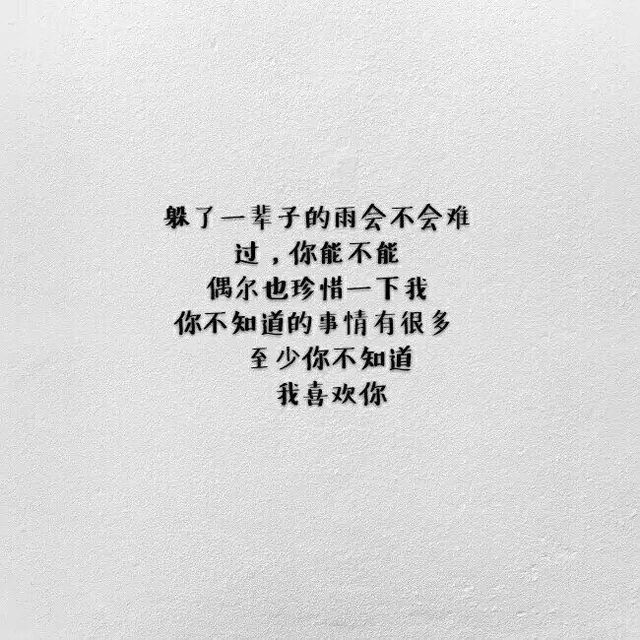 躲了一辈子的雨会不会难
过，你能不能
偶尔也珍惜一下我
你不知道的事情有很多
至少你不知道
我喜欢你